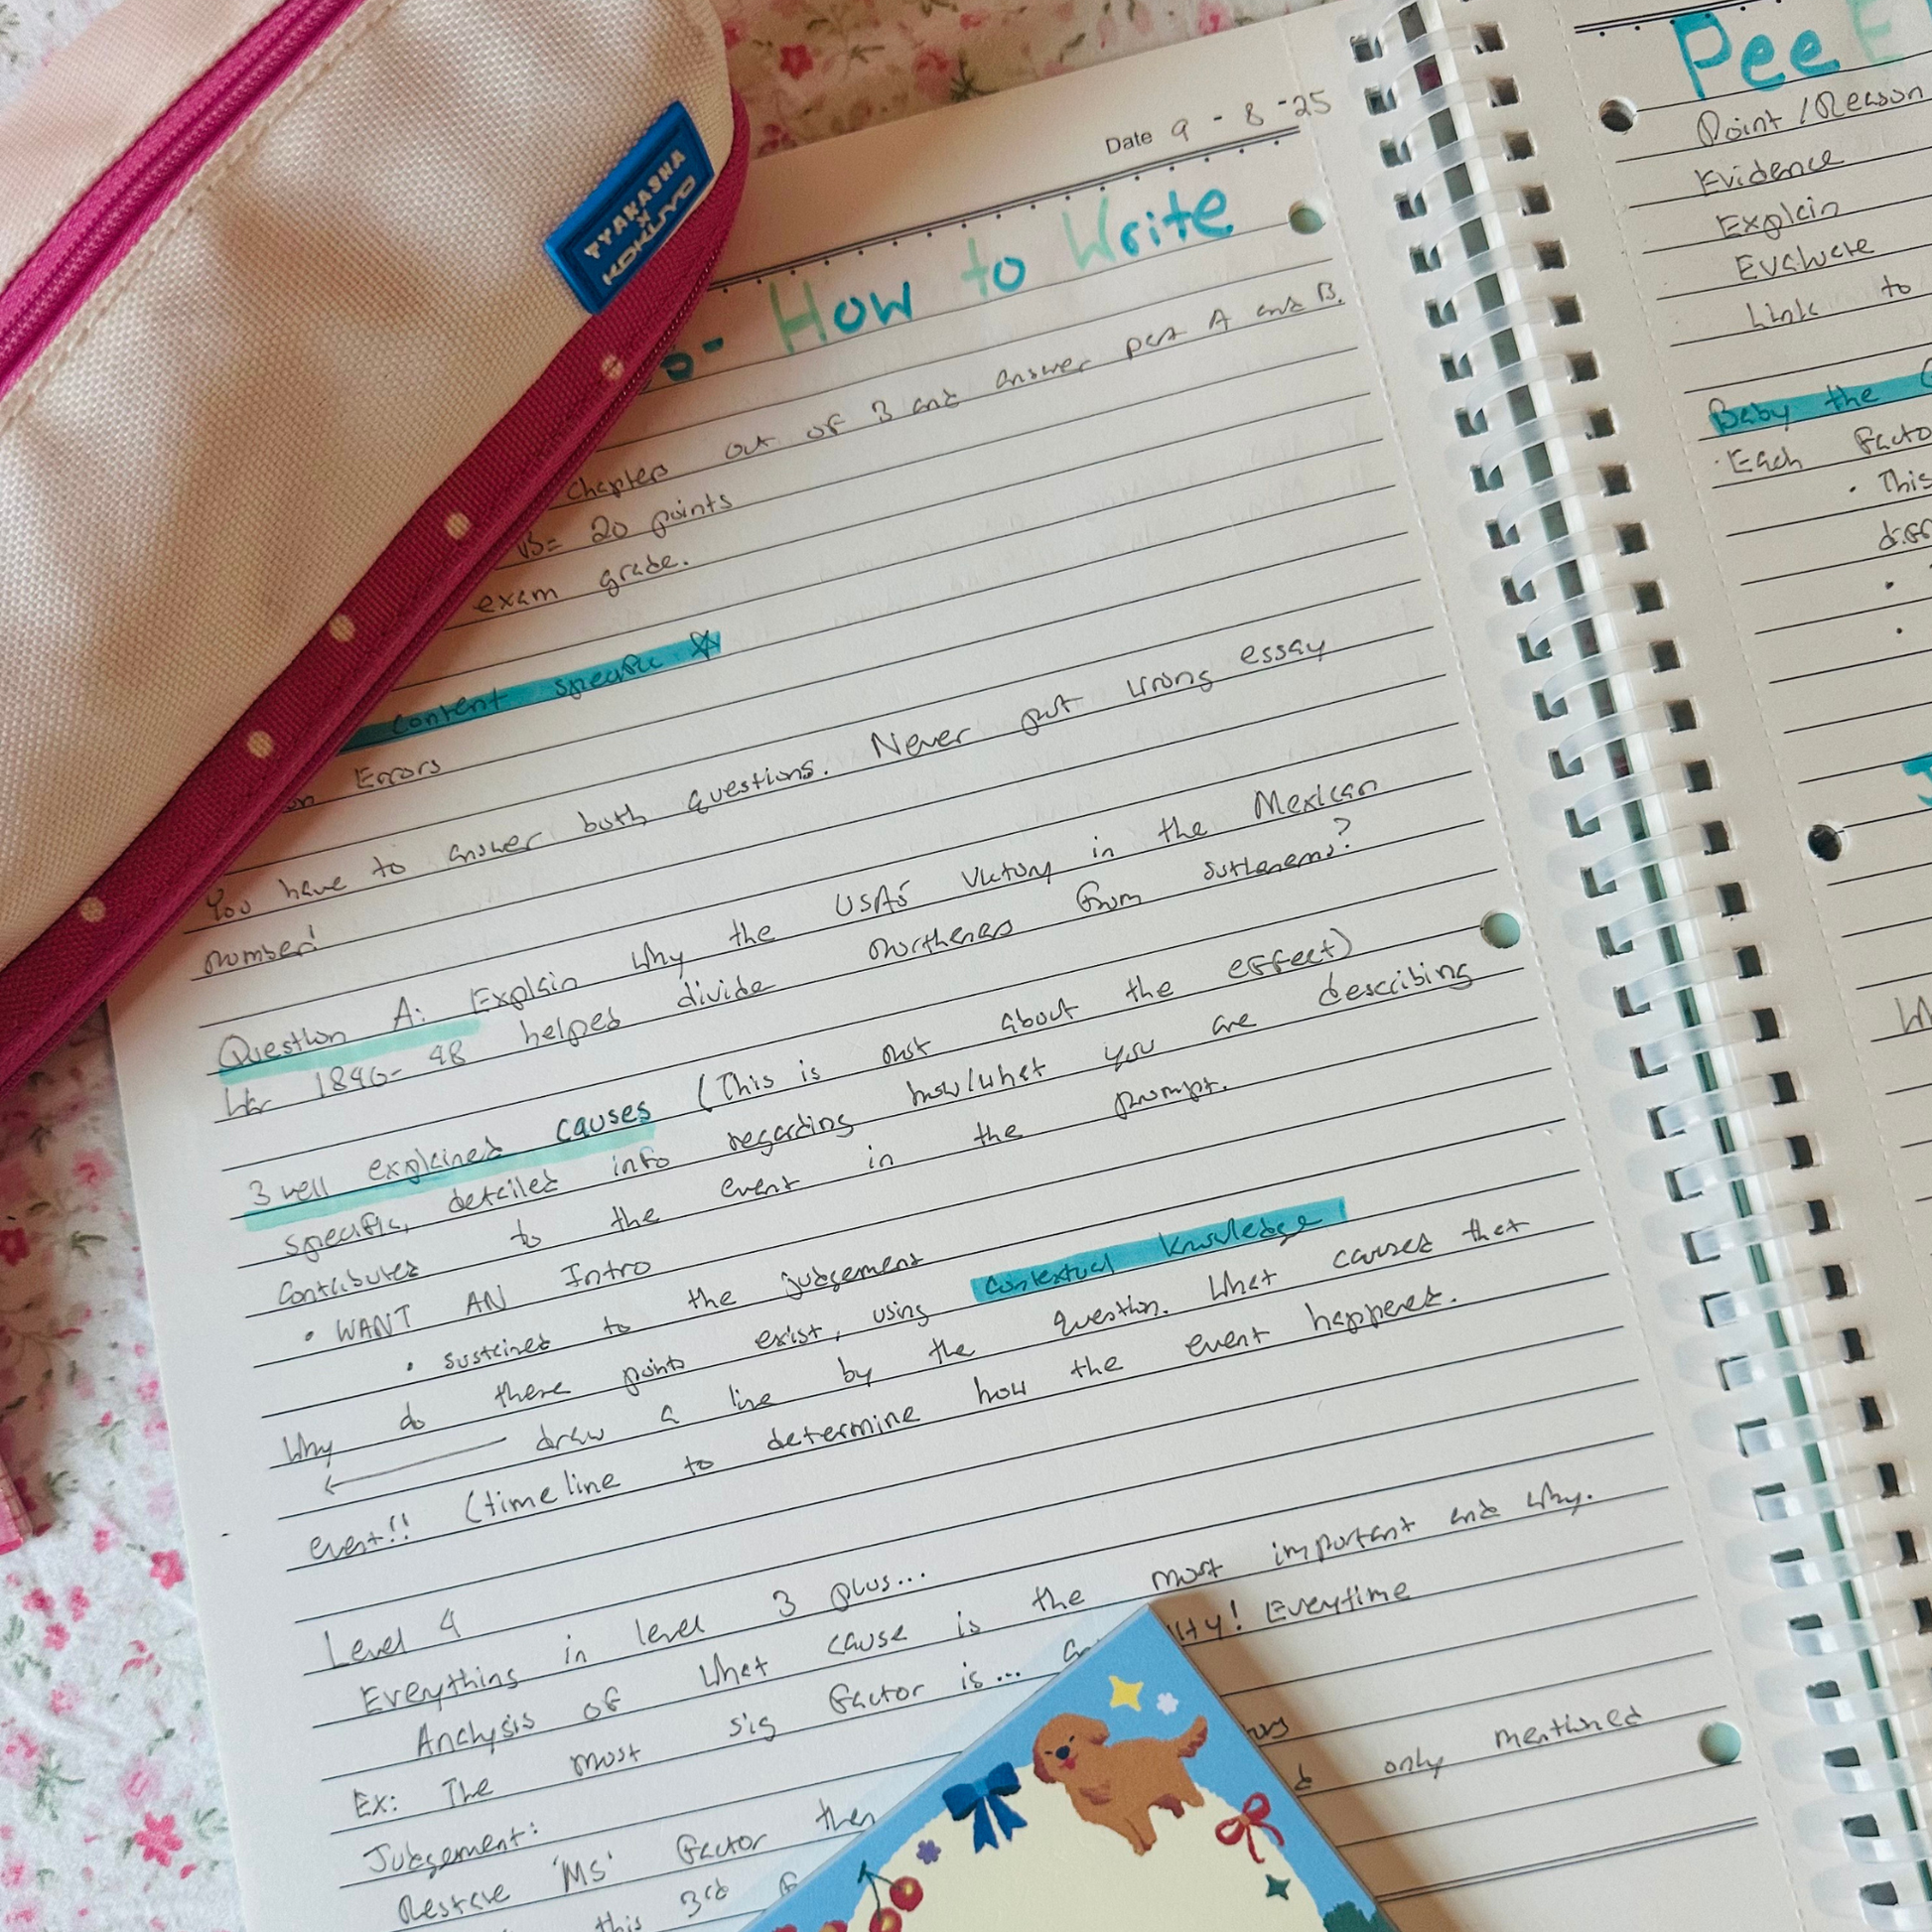 TYAKASHA
x
KOKUYO
Date 9 - 8 -25
- How to Write
chapters out of 3 and answer part A and B.
B= 20 points
exam grade.
content specific ☆
Errors
You have to answer both questions. Never put wrong essay
number!
Question A: Explain why the USA's victory in the Mexican
War 1846-48 helped divide northeners from southeners?
3 well explained causes (This is not about the effect)
specific, detailed info regarding how/what you are describing
contributed to the event in the prompt.
• WANT AN Intro
• sustained to the judgement
Why do these points exist, using contextual knowledge
← draw a line by the question. What caused that
event!! (timeline to determine how the event happened.
Level 4
Everything in level 3 plus...
Analysis of what cause is the most important and why.
Ex: The most sig factor is... lty! Everytime
Judgement:
Restate 'MS' factor then only mentioned
this 3rd
Pee
Point / Reason
Evidence
Explain
Evaluate
Link to
Baby the
· Each facto
· This
diff